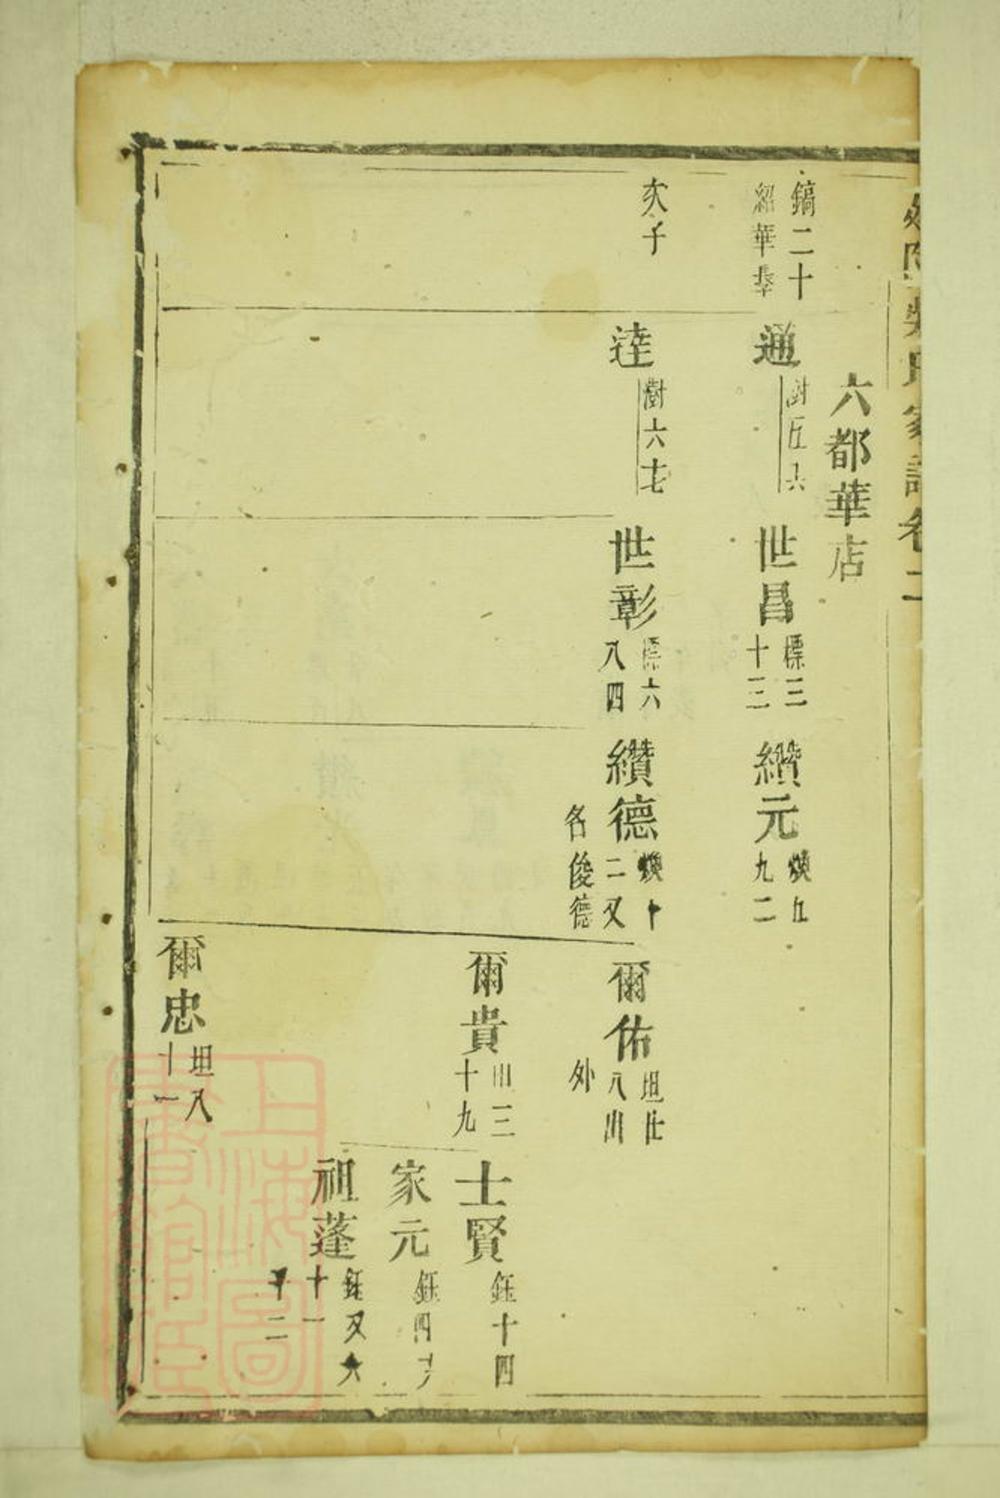 吳氏家譜卷二
六都華店
鎬二十
紹華
次子
通
達
樹六七
世昌
標三
十三
世彰
標六
八四
纘元
煥五
九二
纘德
煥十
二又
名俊德
爾佑
外
爾貴
三
十九
爾忠
坦八
十一
士賢
鈺十四
家元
鈺四
祖蓬
鈺又六
十一
上海圖
書館